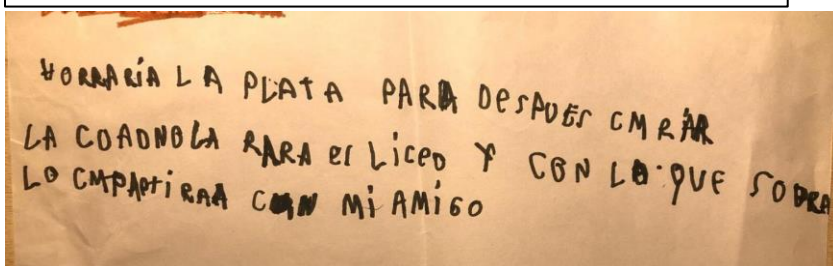 HORRARÍA LA PLATA PARA DESPUES CMRAR
LA COADNOLA RARA EL LICEO Y CON LO QUE SOBRA
LO CMPARTIRAA CON MI AMIGO